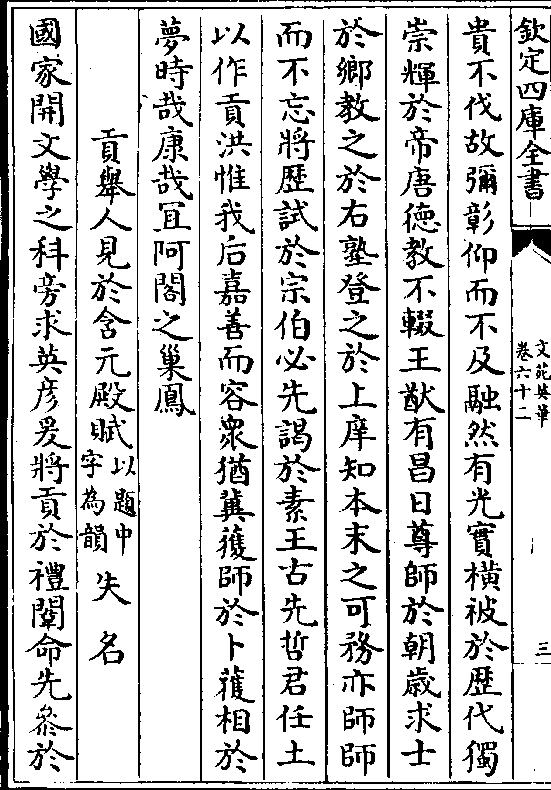 欽定四庫全書
文苑英華
卷六十二
三
貴不伐故彌彰仰而不及融然有光實橫被於歴代獨
崇輝於帝唐德教不輟王猷有昌日尊師於朝歳求士
於鄉教之於右塾登之於上庠知本末之可務亦師師
而不忘將歴試於宗伯必先謁於素王古先哲君任土
以作貢洪惟我后嘉善而容衆猶冀獲師於卜獲相於
夢時哉康哉冝阿閣之巢鳳
貢舉人見於含元殿賦以題中字為韻 失名
國家開文學之科旁求英彦爰將貢於禮闈命先叅於